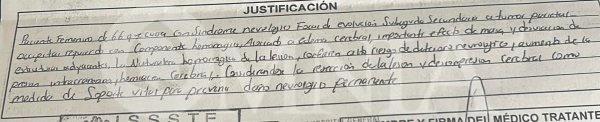 JUSTIFICACIÓN
Paciente Femenino de 66 a que cursa con Sindrome nevrologico Focal de evolución Subaguda Secundario a tumor parieto
occipital izquierdo con Componente hemorragico, Asociado a edema cerebral, importante efecto de masa, y desviacion de
estructuras adyacentes, la Naturaleza hemorragica de la lesion, confiere alto riesgo de deterioro neurologico, aumento de la
presion intracraneana, herniacion Cerebral, Considerandose la reseccion de la lesion y descompresion cerebral como
medida de Soporte vital para prevenir daño neurologico permanente
ISSSTE
Y FIRMA DEL MÉDICO TRATANTE